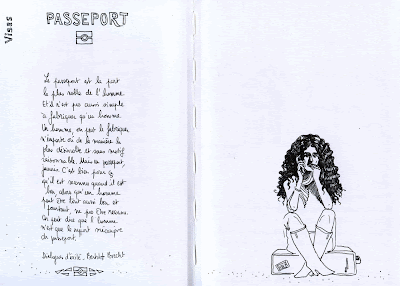 Visas
PASSEPORT
Le passeport est la part
la plus noble de l'homme.
Et il n'est pas aussi simple
à fabriquer qu'un homme.
Un homme, on peut le fabriquer
n'importe où de la manière la
plus désinvolte et sans motif
raisonnable. Mais un passeport,
jamais. C'est bien pour ça
qu'il est reconnu quand il est
bon, alors qu'un homme
peut être tout aussi bon et
pourtant, ne pas être reconnu.
On peut dire que l'homme
n'est que le support mécanique
du passeport.
Dialogues d'exilés, Bertolt Brecht